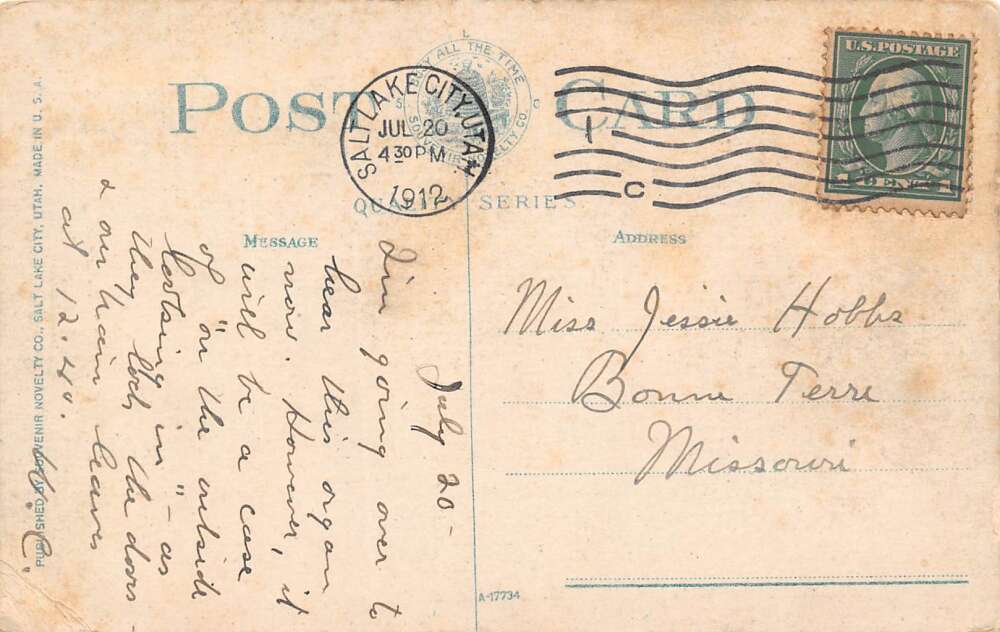 POST CARD
BUSY ALL THE TIME
SOUVENIR NOVELTY CO.
S L C
SALT LAKE CITY, UTAH
JUL 20
4 30 PM
1912
1
C
U.S. POSTAGE
1 CENT 1
QUALITY SERIES
MESSAGE
ADDRESS
July 20 -
I'm going over to
hear this organ
now. However, it
will be a case
of "on the outside
looking in" - as
they lock the doors -
& our train leaves
at 12.40.
Miss Jessie Hobbs
Bonne Terre
Missouri
PUBLISHED BY SOUVENIR NOVELTY CO., SALT LAKE CITY, UTAH. MADE IN U. S. A.
A-17734